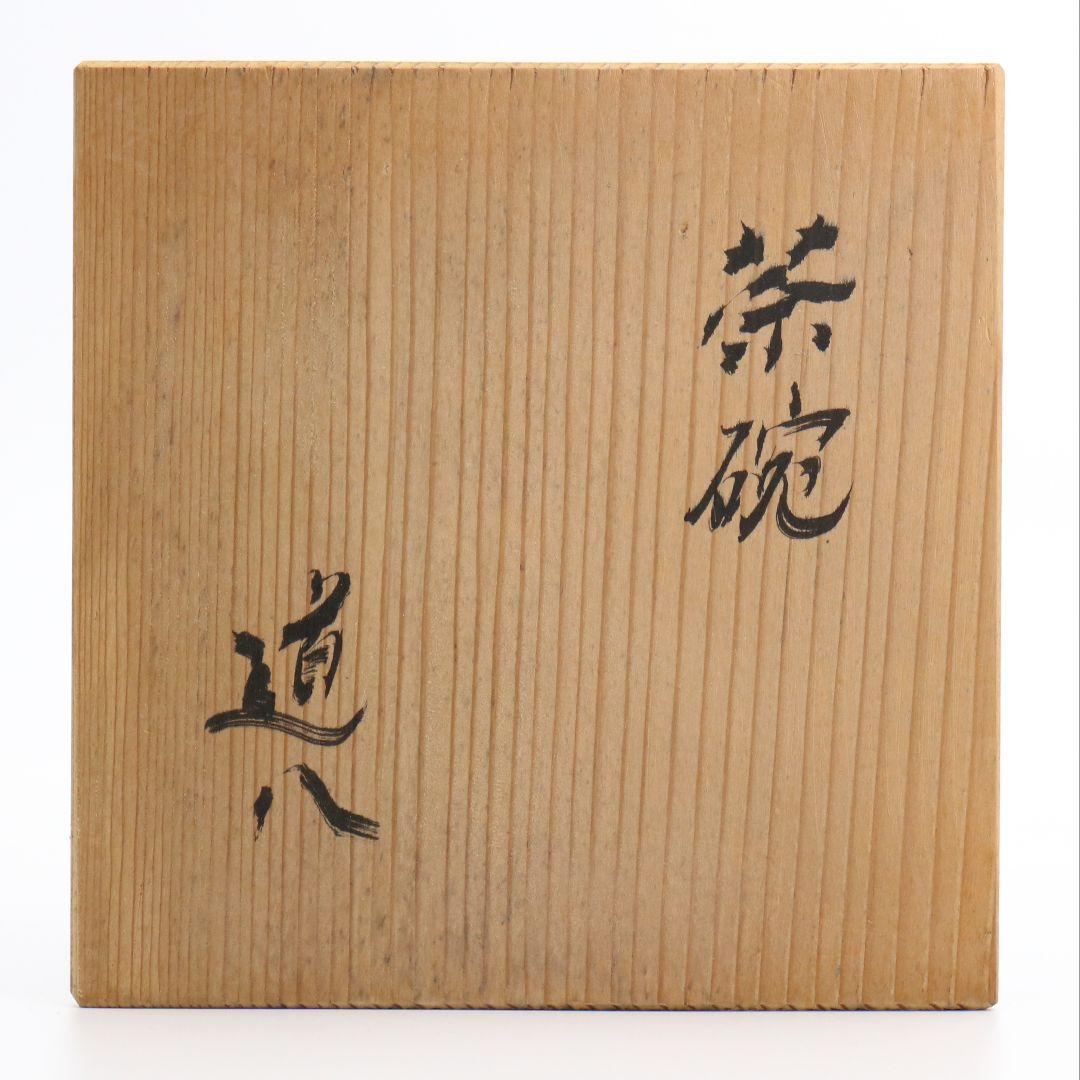 茶碗
道八